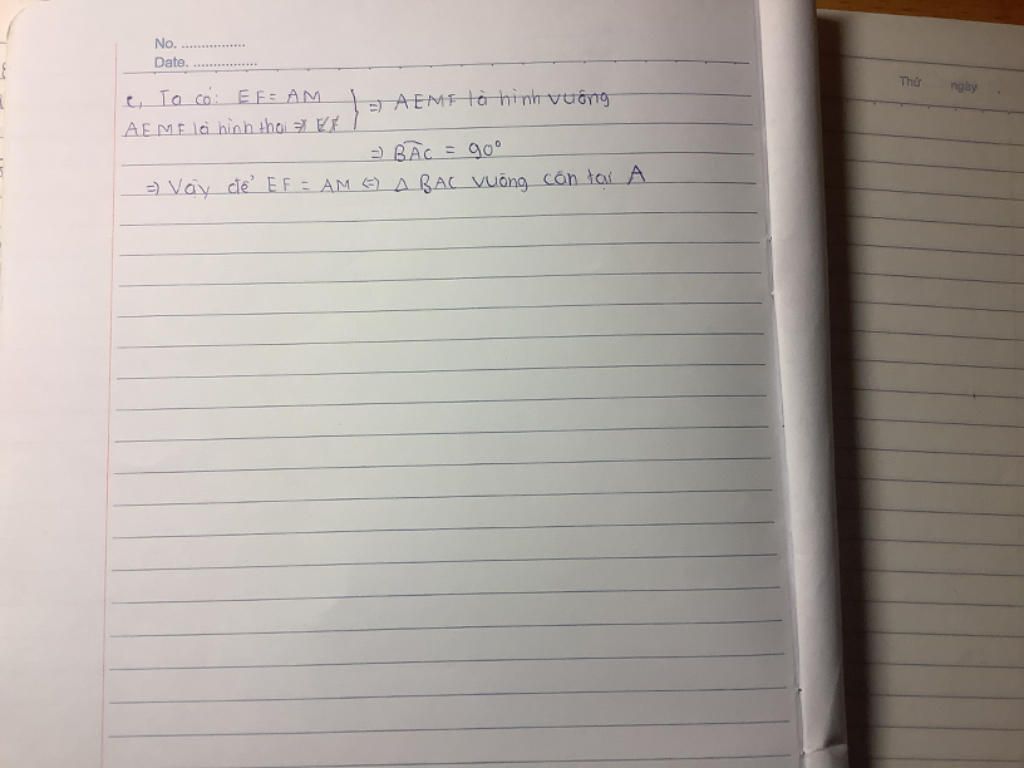 No. ................
Date. ................
Thứ ngày .
c, Ta có: EF = AM
AEMF là hình thoi => } => AEMF là hình vuông
=> BAC = 90°
=> Vậy để EF = AM <=> Δ BAC vuông cân tại A